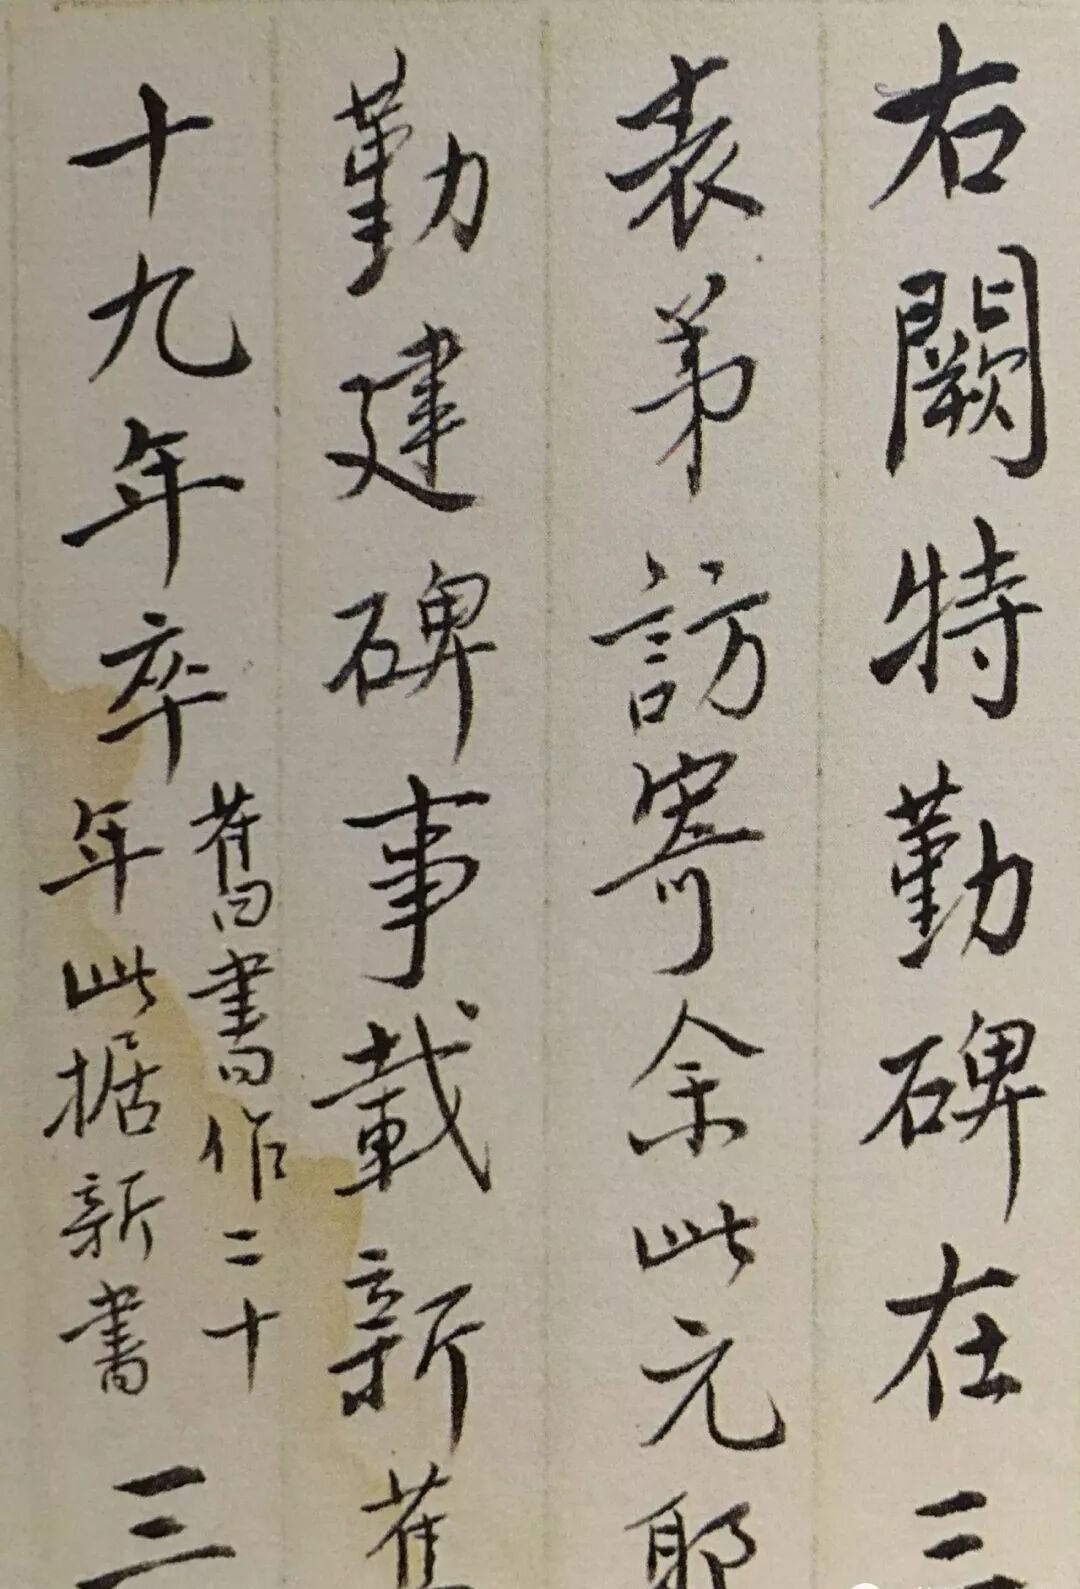 右闕特勤碑在三
表弟訪寄余此元耶
勤建碑事載新舊
十九年卒
舊書作二十
年此据新書
三